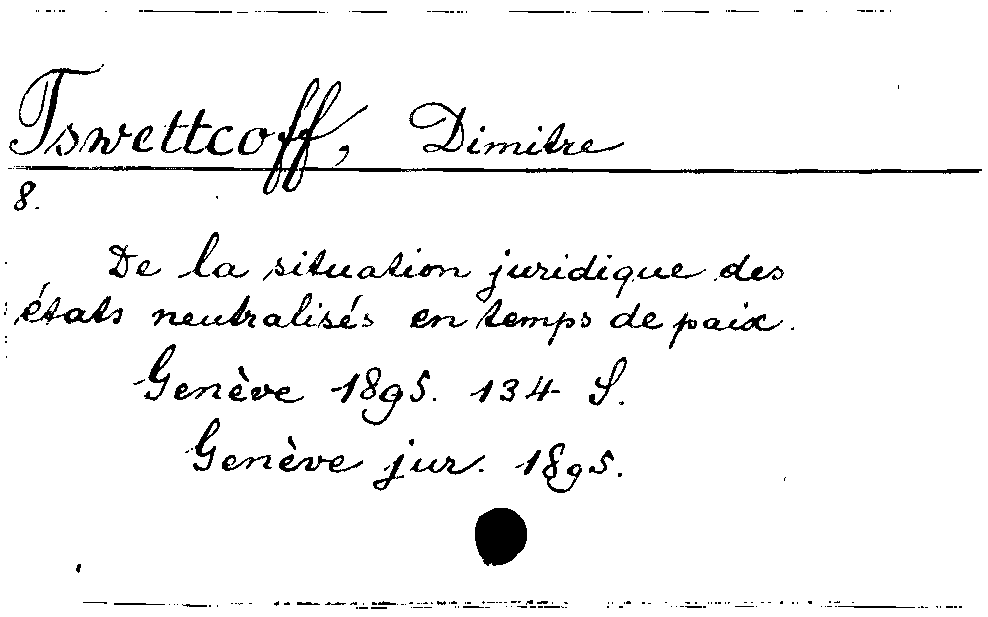 Tswettcoff, Dimitre
8.
De la situation juridique des
états neutralisés en temps de paix.
Genève 1895. 134 S.
Genève jur. 1895.